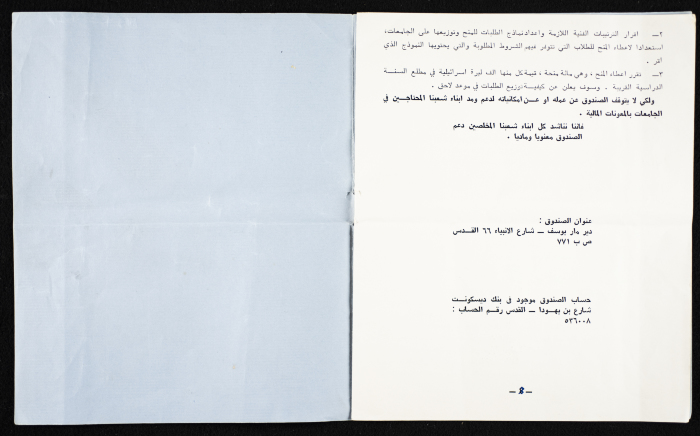 ٢ــ اقرار الترتيبات الفنية اللازمة واعداد نماذج الطلبات للمنح وتوزيعها على الجامعات،
استعدادا لاعطاء المنح للطلاب التي تتوفر فيهم الشروط المطلوبة والتي يحتويها النموذج الذي
اقر .
٣ــ تقرر اعطاء المنح ، وهي مائة منحة ، قيمة كل منها الف ليرة اسرائيلية في مطلع السنة
الدراسية القريبة . وسوف يعلن عن كيفية توزيع الطلبات في موعد لاحق .
ولكي لا يتوقف الصندوق عن عمله او عن امكانياته لدعم ومد ابناء شعبنا المحتاجين في
الجامعات بالمعونات المالية .
فاننا نناشد كل ابناء شعبنا المخلصين دعم
الصندوق معنويا وماديا .
عنوان الصندوق :
دير مار يوسف ــ شارع الانبياء ٦٦ القدس
ص ب ٧٧١
حساب الصندوق موجود في بنك ديسكونت
شارع بن يهودا ــ القدس رقم الحساب :
٥٣٦٠٠٨